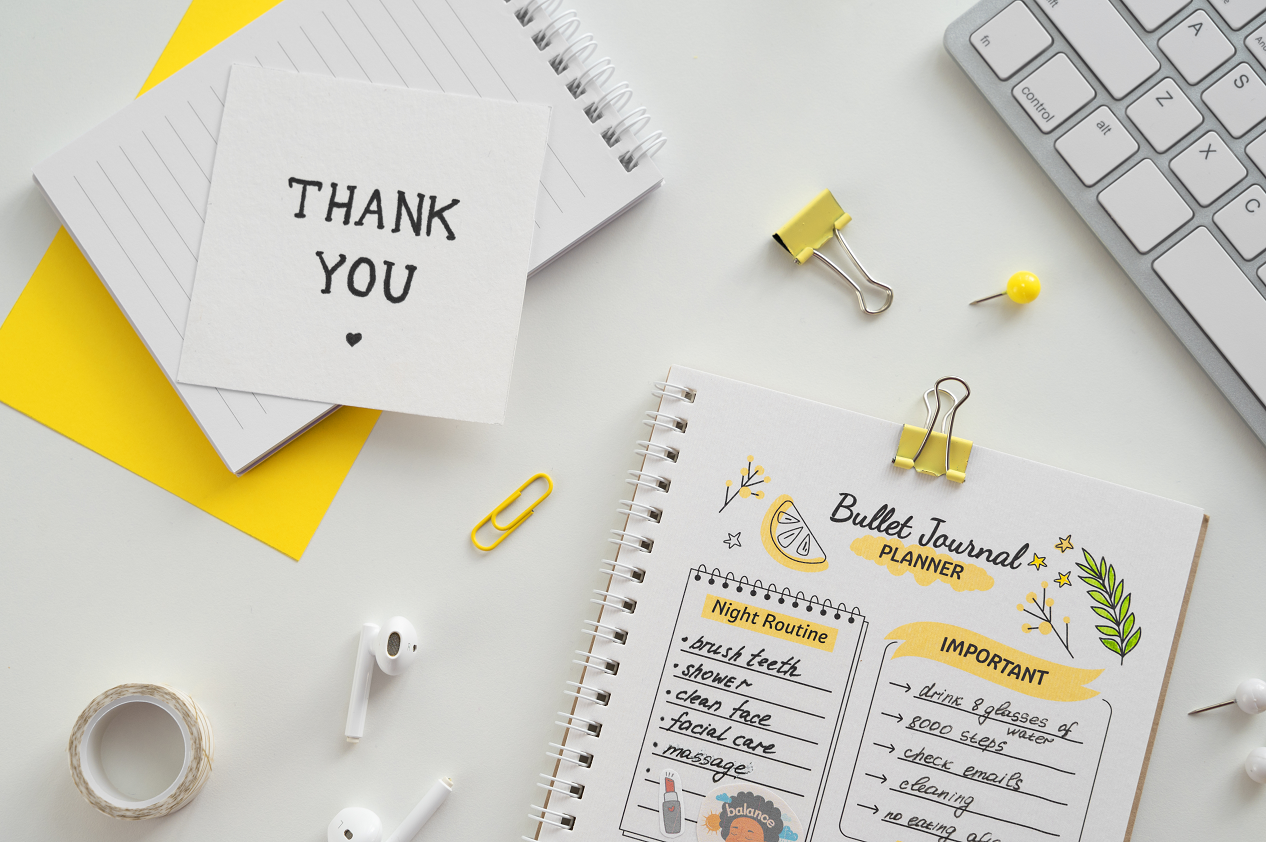 THANK
YOU
fn
shift
control
alt
A
Z
S
X
C
Bullet Journal
PLANNER
Night Routine
• brush teeth
• shower
• clean face
• facial care
• massage
•
balance
IMPORTANT
→ drink 8 glasses of
water
→ 8000 steps
→ check emails
→ cleaning
→ no eating